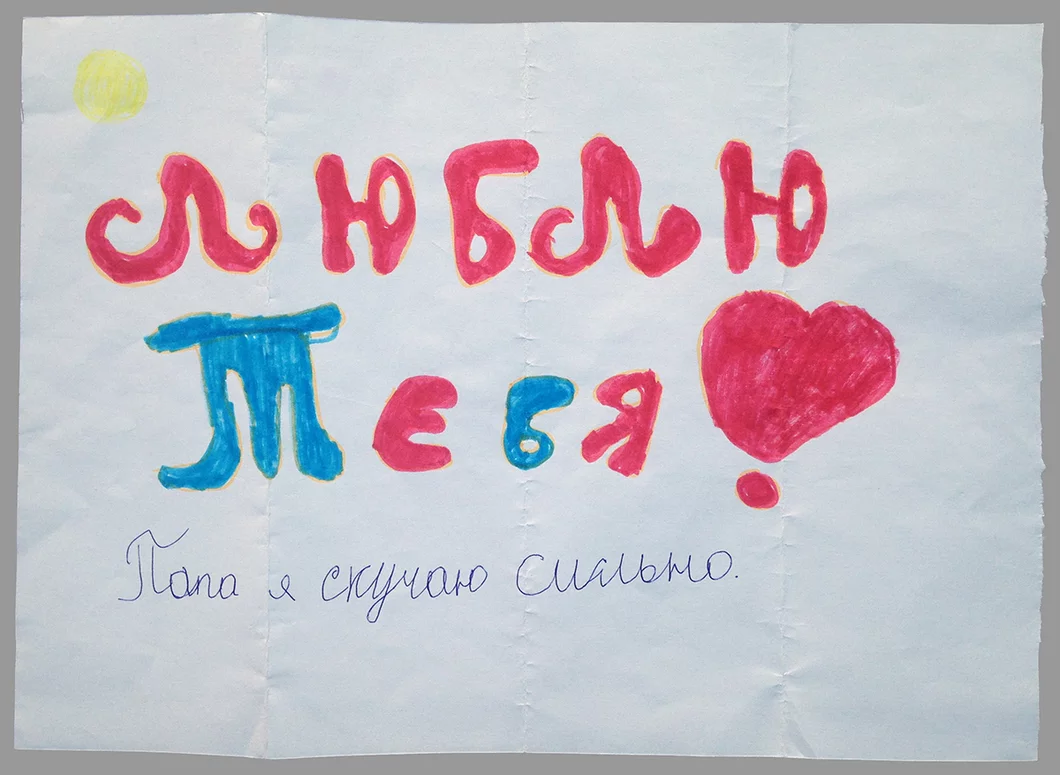 Люблю
Тебя
Папа я скучаю сильно.